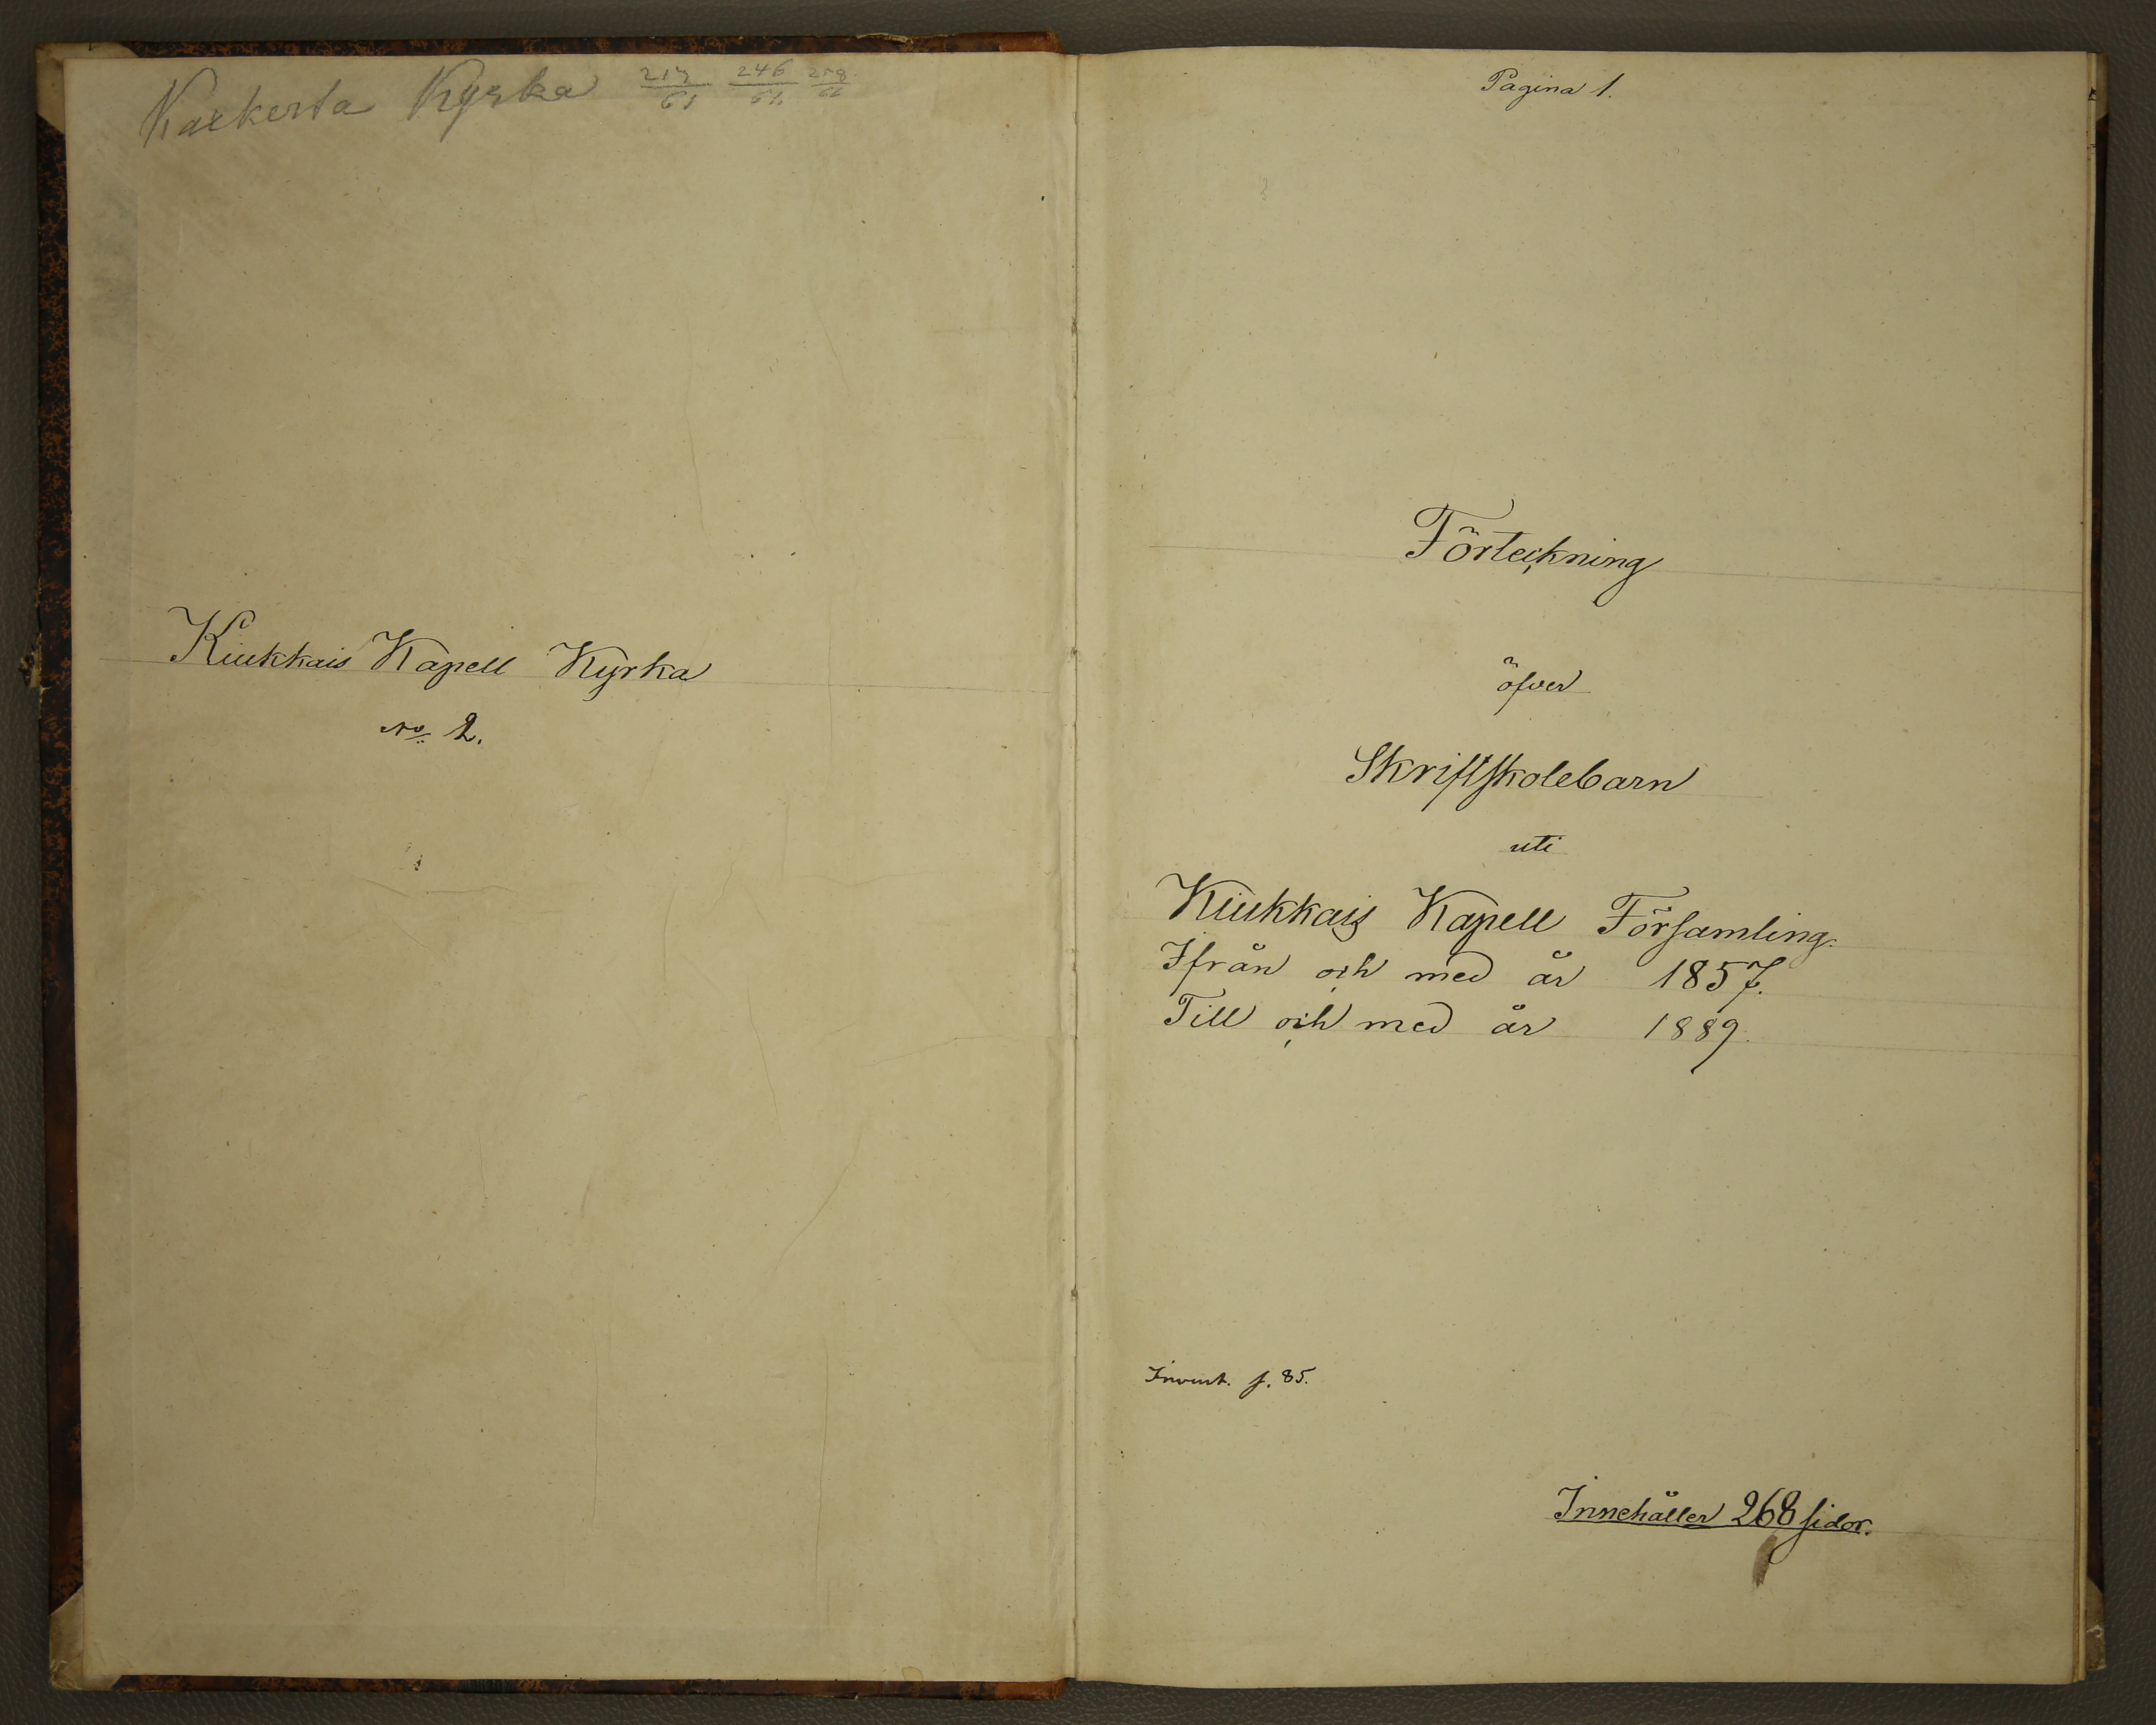 Kyrka 246
Kiukkais Kapell Kyrka
No 2.
Pagina 1.
Förteckning
öfver
Skriftskolebarn
uti
Kiukkais Kapell Församling.
Ifrån och med år 1857.
Till och med år 1889.
Invent. s. 85.
Innehåller 268 sidor.